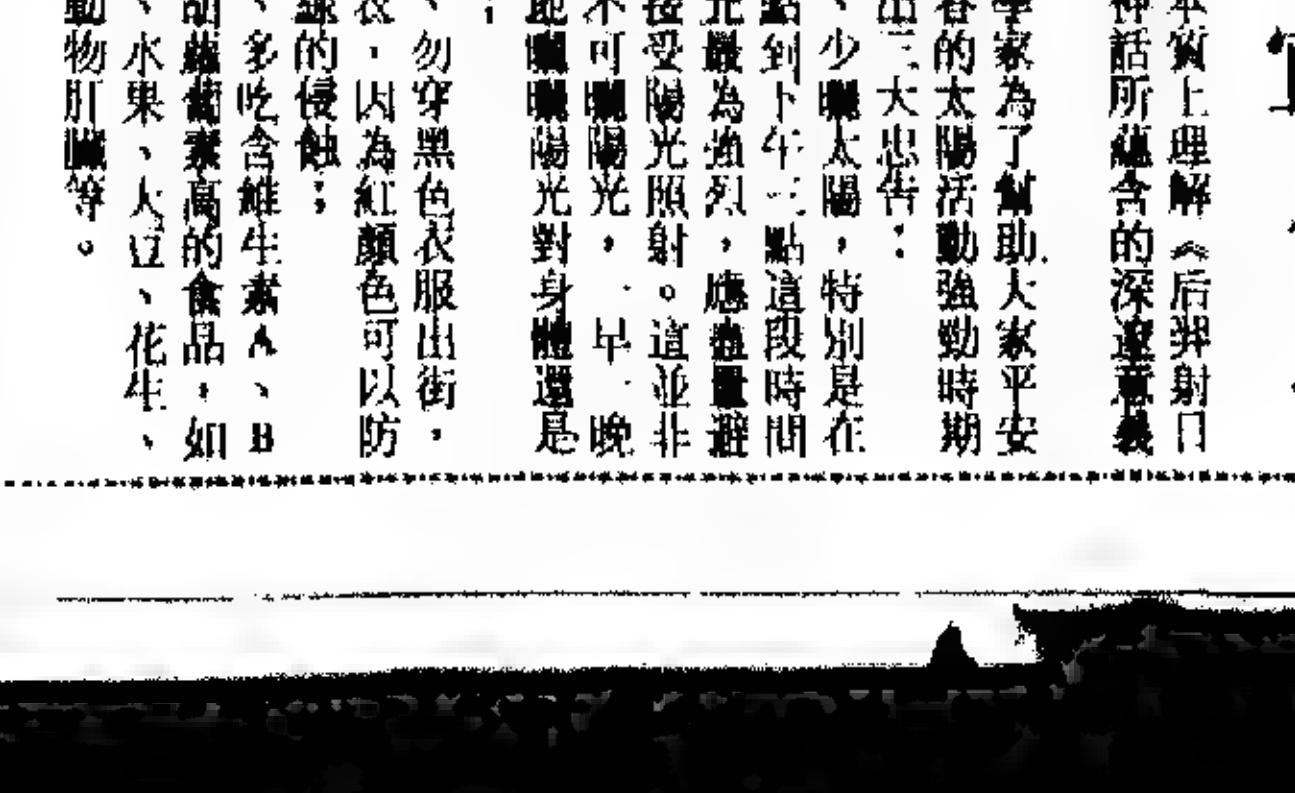 本質上理解《后羿射日
神話所蘊含的深邃意義
學家為了幫助大家平安
春的太陽活動強勁時期
出三大忠告：
、少曬太陽，特別是在
點到下午三點這段時間
光最為強烈，應盡量避
接受陽光照射。這並非
不可曬陽光，早、晚
地曬曬陽光對身體還是
；
、勿穿黑色衣服出街，
衣，因為紅顏色可以防
線的侵蝕；
、多吃含維生素A、B
胡蘿蔔素高的食品，如
、水果、大豆、花生、
動物肝臟等。